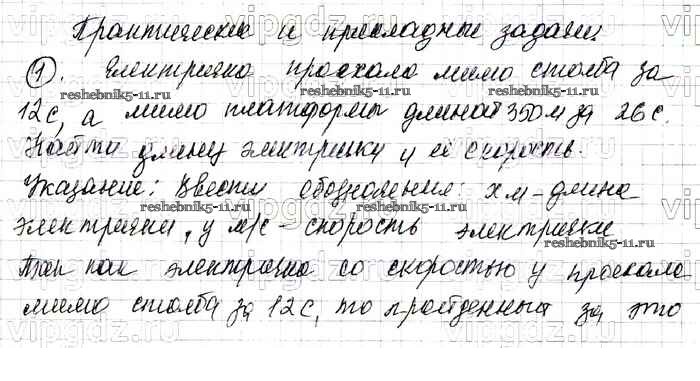 Практические и прикладные задачи.
① . Електричка проехала мимо столба за
12с, а мимо платформы длиной 350 м за 26 с.
Найти длину электрички и её скорость.
Указание: Ввести обозначение: x м – длина
электрички, y м/с – скорость электрички
Так как электричка со скоростью y проехала
мимо столба за 12с, то пройденный за это
vipgdz.ru
reshebnik5-11.ru